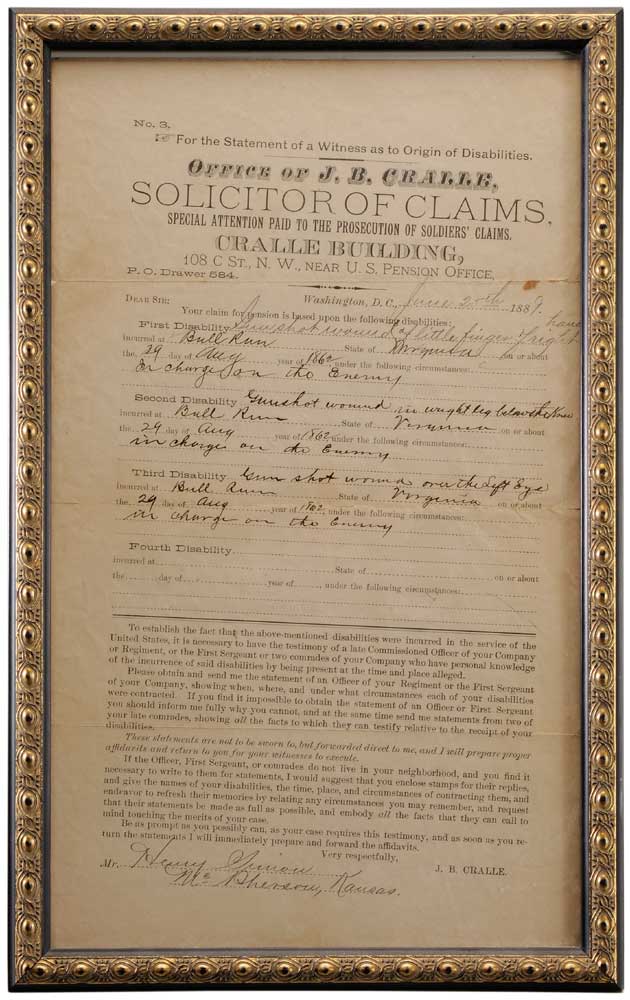 No. 3.
☞ For the Statement of a Witness as to Origin of Disabilities.
OFFICE OF J. B. CRALLE,
SOLICITOR OF CLAIMS,
SPECIAL ATTENTION PAID TO THE PROSECUTION OF SOLDIERS' CLAIMS.
CRALLE BUILDING,
108 C ST., N. W., NEAR U. S. PENSION OFFICE,
P. O. Drawer 584.
Washington, D. C., June 20th 1889.
DEAR SIR:
Your claim for pension is based upon the following disabilities:
First Disability Gunshot wound of little finger right hand
incurred at Bull Run State of Virginia on or about
the 29 day of Aug year of 1862 under the following circumstances:
in charge on the Enemy
Second Disability Gunshot wound in wright leg below the Knee
incurred at Bull Run State of Virginia on or about
the 29 day of Aug year of 1862 under the following circumstances:
in charge on the Enemy
Third Disability Gun shot wound over the Left Eye
incurred at Bull Run State of Virginia on or about
the 29 day of Aug year of 1862, under the following circumstances:
in charge on the Enemy
Fourth Disability
incurred at State of on or about
the day of year of under the following circumstances:
To establish the fact that the above-mentioned disabilities were incurred in the service of the
United States, it is necessary to have the testimony of a late Commissioned Officer of your Company
or Regiment, or the First Sergeant or two comrades of your Company who have personal knowledge
of the incurrence of said disabilities by being present at the time and place alleged.
Please obtain and send me the statement of an Officer of your Regiment or the First Sergeant
of your Company, showing when, where, and under what circumstances each of your disabilities
were contracted. If you find it impossible to obtain the statement of an Officer or First Sergeant
you should inform me fully why you cannot, and at the same time send me statements from two of
your late comrades, showing all the facts to which they can testify relative to the receipt of your
disabilities.
These statements are not to be sworn to, but forwarded direct to me, and I will prepare proper
affidavits and return to you for your witnesses to execute.
If the Officer, First Sergeant, or comrades do not live in your neighborhood, and you find it
necessary to write to them for statements, I would suggest that you enclose stamps for their replies,
and give the names of your disabilities, the time, place, and circumstances of contracting them, and
endeavor to refresh their memories by relating any circumstances you may remember, and request
that their statements be made as full as possible, and embody all the facts that they can call to
mind touching the merits of your case.
Be as prompt as you possibly can, as your case requires this testimony, and as soon as you re-
turn the statements I will immediately prepare and forward the affidavits.
Very respectfully,
J. B. CRALLE.
Mr. Henry Simon
McPherson, Kansas.